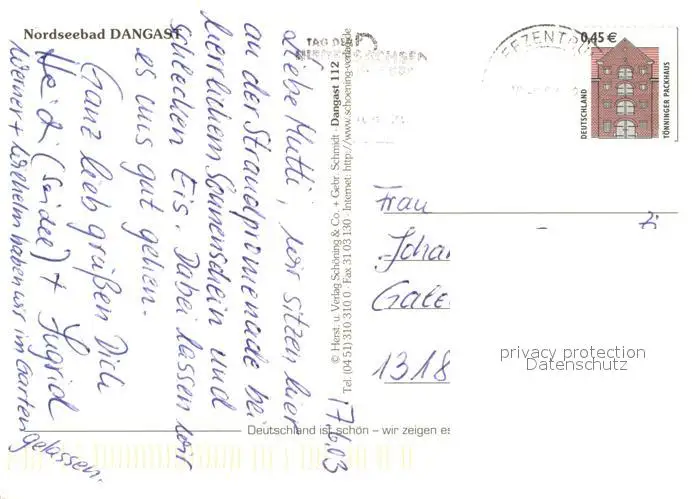 Nordseebad DANGAST
17.6.03
Liebe Mutti, wir sitzen hier
an der Strandpromenade bei
herrlichem Sonnenschein und
schlecken Eis. Dabei lassen wir
es uns gut gehen.
Ganz lieb grüßen Dich
Heidi (Seidel) + Ingrid
Werner + Wilhelm haben wir im Garten gelassen.
© Herst. u. Verlag Schöning & Co. + Gebr. Schmidt · Dangast 112
Tel. (04 51) 310 310 0 · Fax 31 03 130 · Internet: http://www.schoening-verlag.de
Deutschland ist schön – wir zeigen es
TAG DER
0,45 €
DEUTSCHLAND
TÖNNINGER PACKHAUS
Frau
Johan
1318
privacy protection
Datenschutz